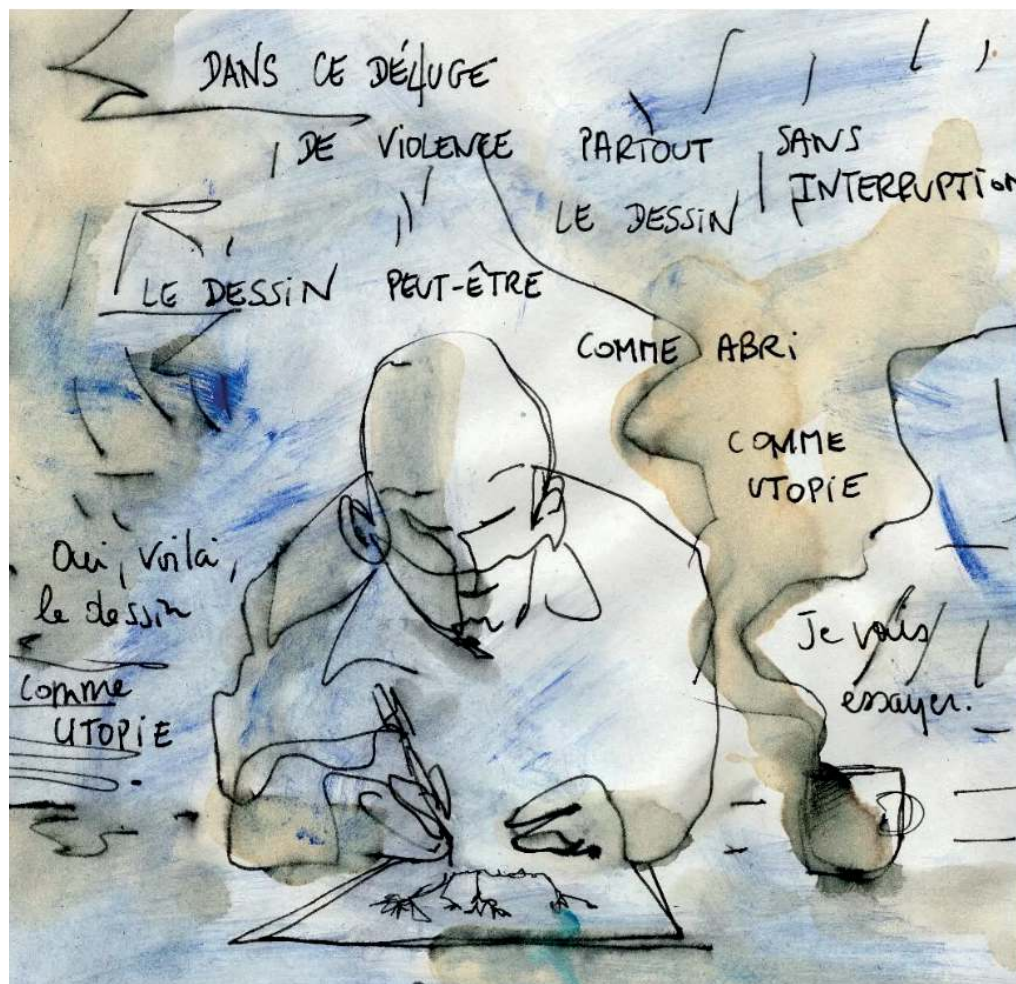 DANS CE DÉLUGE
DE VIOLENCE PARTOUT SANS
INTERRUPTION
LE DESSIN
LE DESSIN PEUT-ÊTRE
COMME ABRI
COMME
UTOPIE
Oui, voilà,
le dessin
comme
UTOPIE
Je vais
essayer.